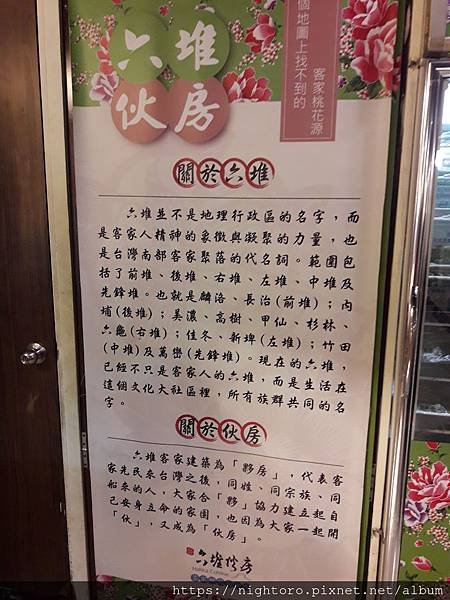 六堆
伙房
個地圖上找不到的
客家桃花源
關於六堆
六堆並不是地理行政區的名字，而
是客家人精神的象徵與凝聚的力量，也
是台灣南部客家聚落的代名詞。範圍包
括了前堆、後堆、右堆、左堆、中堆及
先鋒堆。也就是麟洛、長治(前堆)；內
埔(後堆)；美濃、高樹、甲仙、杉林、
六龜(右堆)；佳冬、新埤(左堆)；竹田
(中堆)及萬巒(先鋒堆)。現在的六堆，
已經不只是客家人的六堆，而是生活在
這個文化大社區裡，所有族群共同的名
字。
關於伙房
六堆客家建築為「夥房」，代表客
家先民來台灣之後，同姓、同宗族、同
船來的人，大家合「夥」協力建立起自
己安身立命的家園，也因為大家一起開
「伙」，又成為「伙房」。
六堆伙房
Hakka Cuisine
https://nightoro.pixnet.net/album